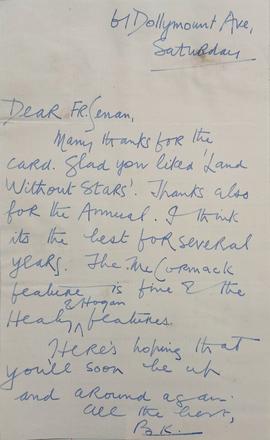 61 Dollymount Ave,
Saturday
Dear Fr. Senan,
Many thanks for the
card. Glad you liked 'Land
Without Stars'. Thanks also
for the Annual. I think
its the best for several
years. The McCormack
feature is fine & the
& Hogan
Healy features.
Here's hoping that
you'll soon be up
and around again.
All the best,
B.K.